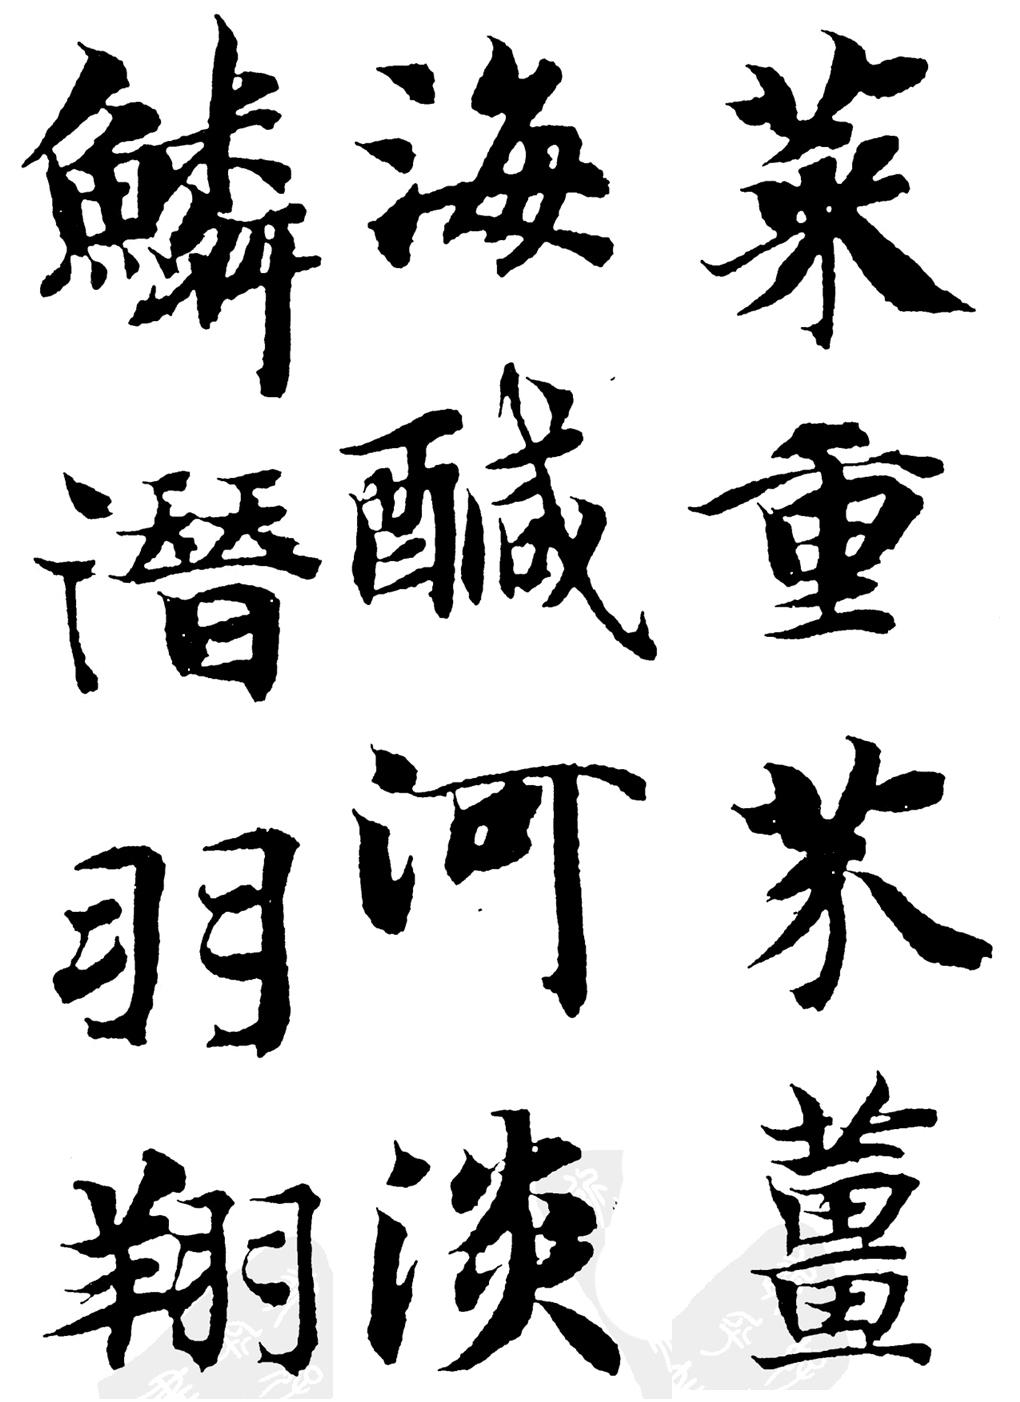 菜重芥薑
海醎河淡
鱗潛羽翔